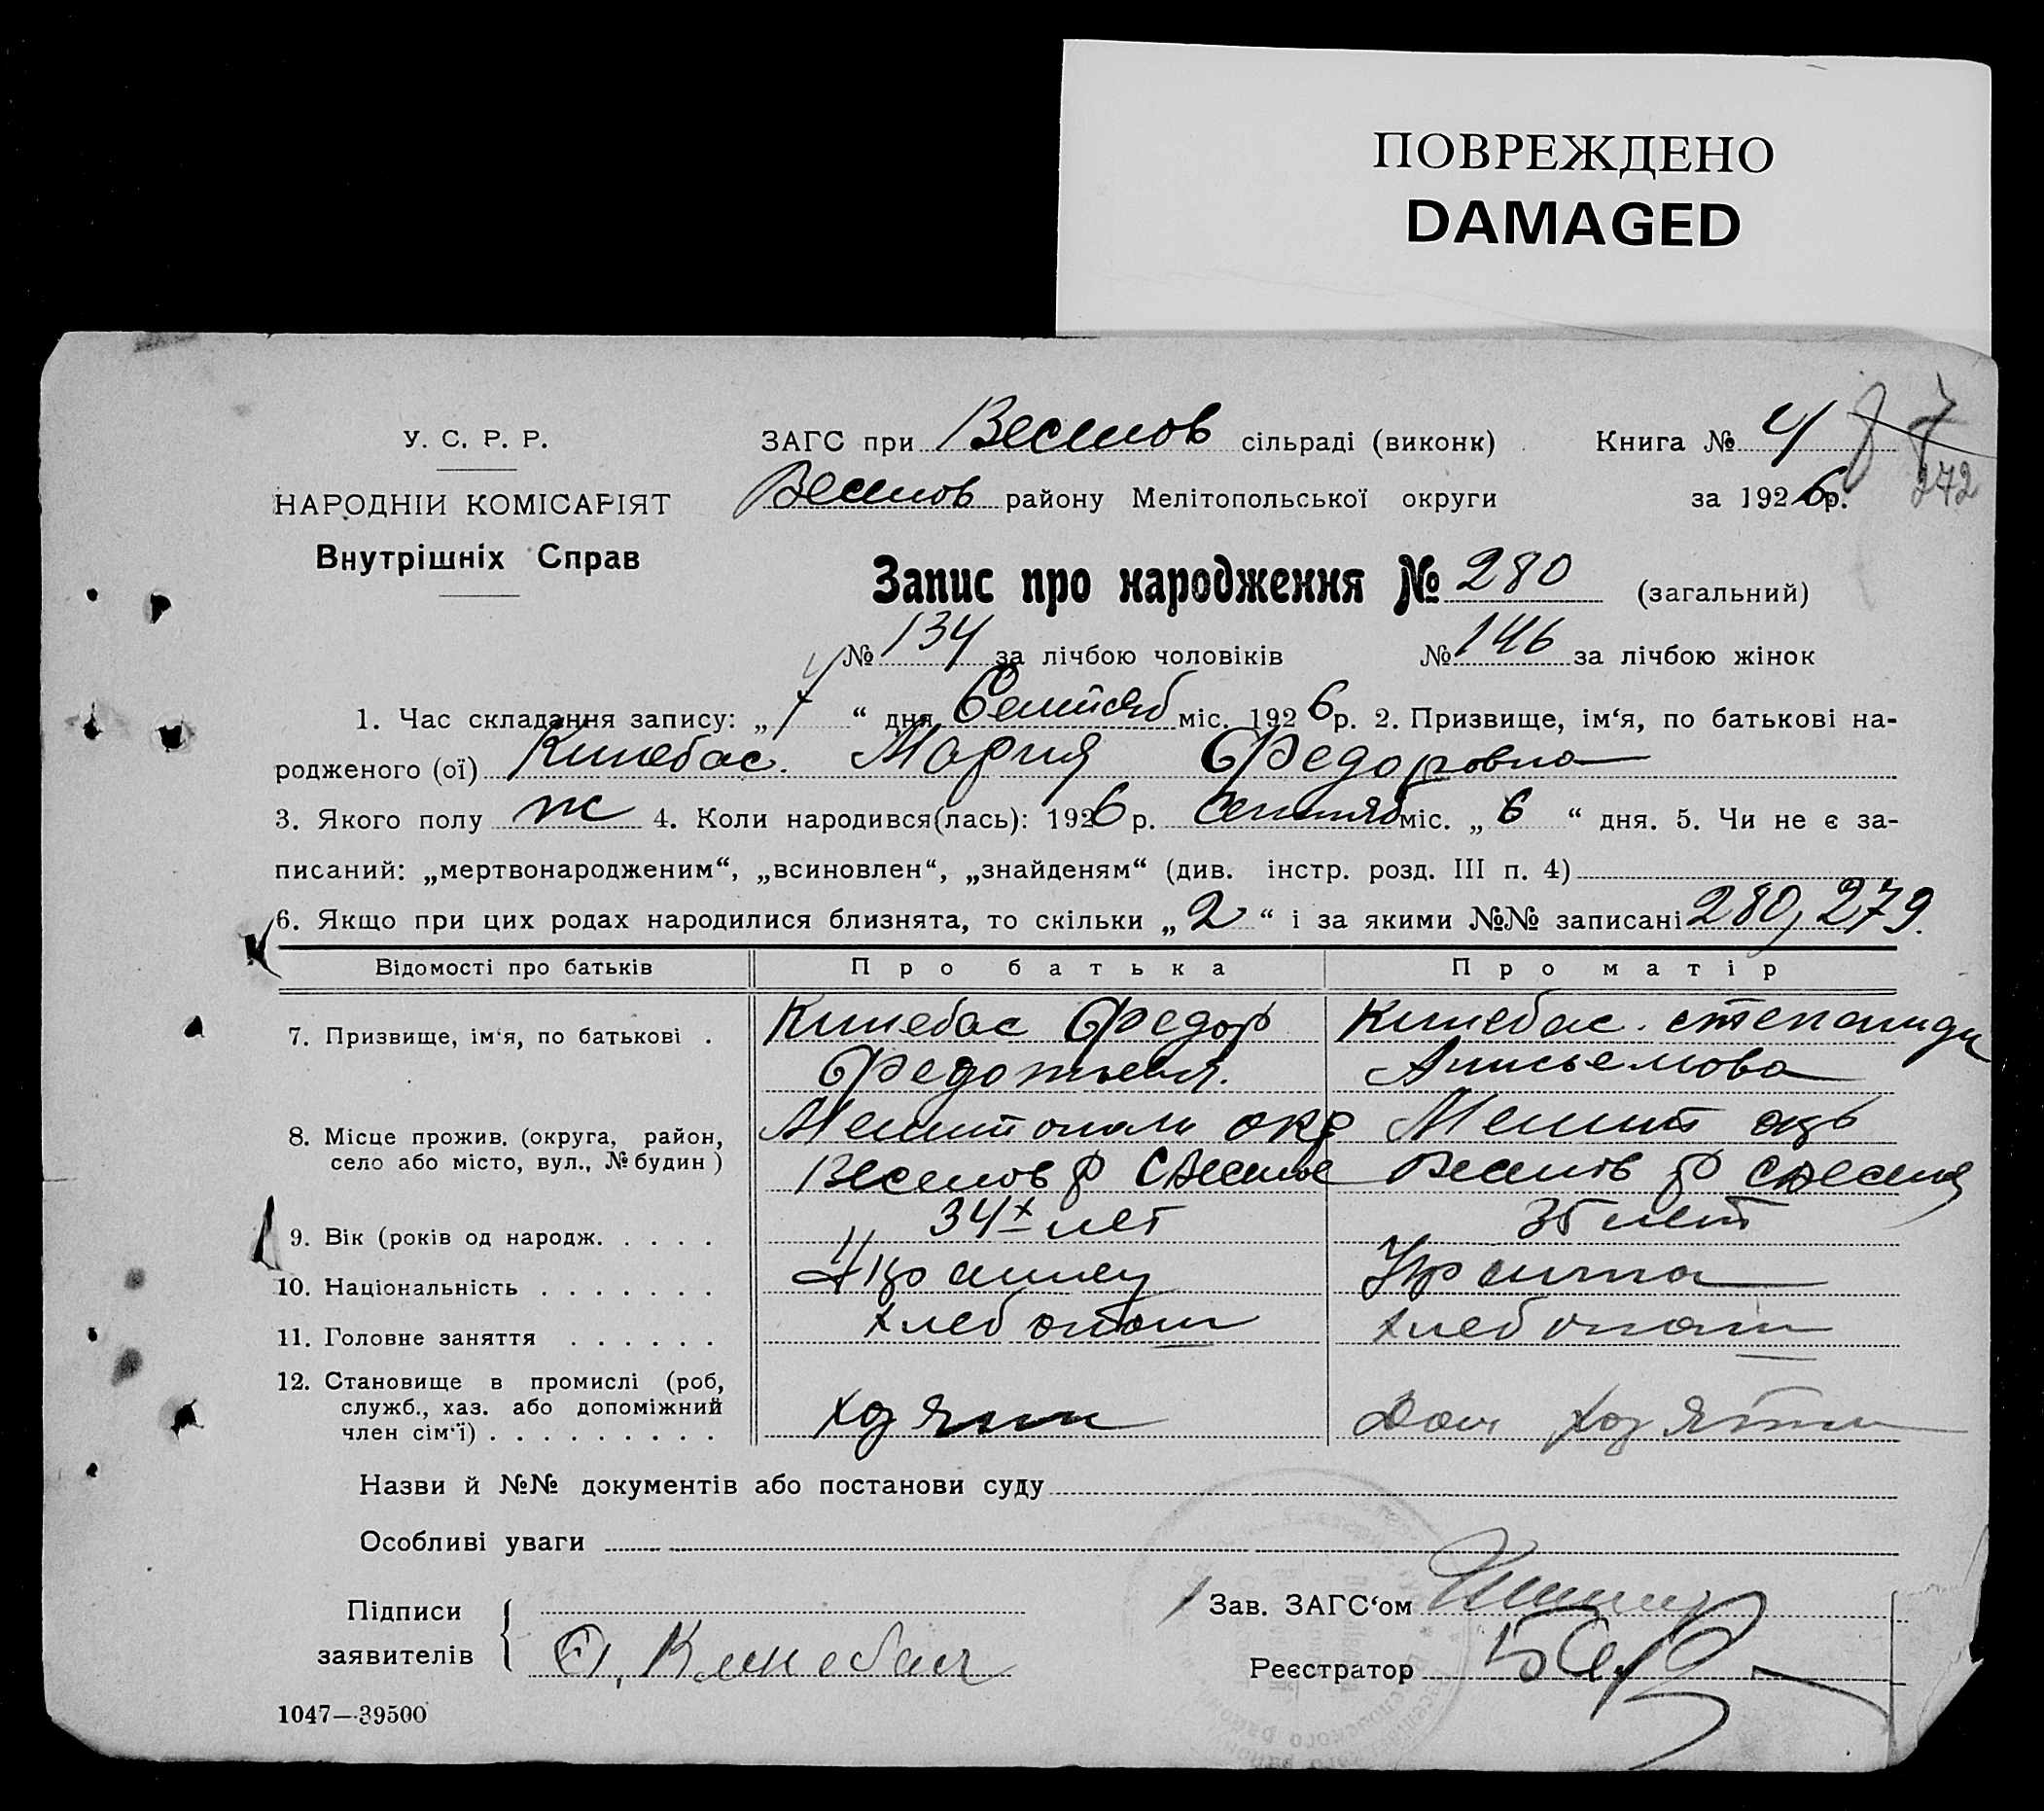 ПОВРЕЖДЕНО
DAMAGED
У. С. Р. Р.
НАРОДНІЙ КОМІСАРІЯТ
Внутрішніх Справ
ЗАГС при Веселов сільраді (виконк) Книга № 4
Веселов району Мелітопольської округи за 1926 р.
272
Запис про народження № 280 (загальний)
№ 134 за лічбою чоловіків № 146 за лічбою жінок
1. Час складання запису: „ “ дня Сентяб міс. 1926 р. 2. Призвище, ім‘я, по батькові на-
родженого (ої) Кинебас. Мария Федоровна
3. Якого полу ж 4. Коли народився(лась): 1926 р. Сентяб міс. „ 6 “ дня. 5. Чи не є за-
писаний: „мертвонародженим“, „всиновлен“, „знайденям“ (див. інстр. розд. III п. 4)
6. Якщо при цих родах народилися близнята, то скільки „ 2 “ і за якими №№ записані 280, 279.
Відомості про батьків Про батька Про матір
7. Призвище, ім‘я, по батькові . Кинебас Федор Кинебас. Степанида
Федотьев. Анисьемова
8. Місце прожив. (округа, район, Мелитополь окр Мелит окр
село або місто, вул., № будин ) Веселов р с Веселое Веселов р с Веселое
9. Вік (років од народж. . . . . 34х лет 35 лет
10. Національність . . . . . . . Украинец Украинка
11. Головне заняття . . . . . . Хлебопаш Хлебопаш
12. Становище в промислі (роб,
служб., хаз. або допоміжний хозяин Дом хозяйки
член сім‘ї) . . . . . . . . .
Назви й №№ документів або постанови суду
Особливі уваги
Підписи
заявителів Ф. Кинебас
Зав. ЗАГС‘ом
Реєстратор
1047—39500